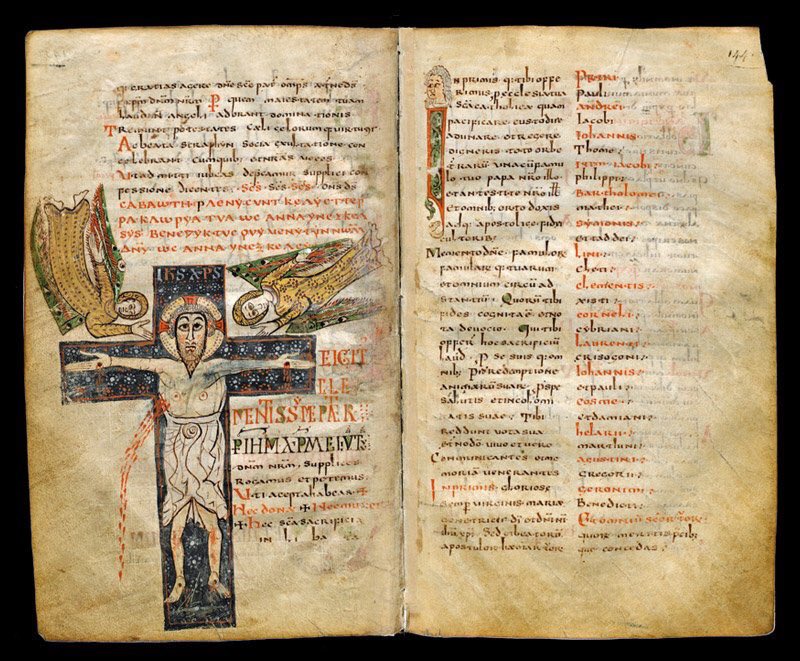 Gratias agere dne sce pat omps aetne ds
p xpm dnm nrm P quem maiestatem tuam
laudant angeli adorant dominationes
Tremunt potestates Caeli celorumque virtutes
Ac beata seraphin socia exultatione con
celebrant Cum quib et nras voces
Ut admitti iubeas deprecamur supplici con
fessione dicentes Scs Scs Scs Dns ds
CABAWTH
IHS XPS
TE IGIT
CLE
MENTISSME PATER
P IHM XPM
dnm nrm supplices
Rogamus et petimus
Uti accepta habeas
Hec dona + Hec munera
+ Hec sca sacrificia
in li ba ta
144
In primis q tibi offe
rimus p ecclesia tua
sca catholica quam
pacificare custodire
adunare et regere
digneris toto orbe
terraru una cu famu
lo tuo papa nro ill
et antestite nro ill
et omnib orthodoxis
atq apostolice fidei
cultorib
Memento dne famulor
famularq tuarum
et omnium circu ad
stantiu Quoru tibi
fides cognita e et no
ta devocio Qui tibi
offer hoc sacrificiu
laud P se suisq om
nib P redemptione
animaru suar P spe
salutis et incolomi
tatis suae Tibi
reddunt vota sua
et no do vivo et vero
Communicantes et me
moria venerantes
Inprimis gloriose
semp virginis mariae
genetricis di et dni nri
ihu xpi Sed et beatoru
apostoloru
Petri
Pauli
andrei
Iacobi
Iohannis
Thome
Item iacobi
philippi
Bartholomei
mathei
symonis
et taddei
Lini
cleti
clementis
xisti
corneli
cybriani
Laurenti
crisogoni
Iohannis
et pauli
cosme
et damiani
helarii
martini
agustini
Gregorii
Geronimi
Benedicti
Et omnium scoru tuor
quoru meritis pcib
que concedas